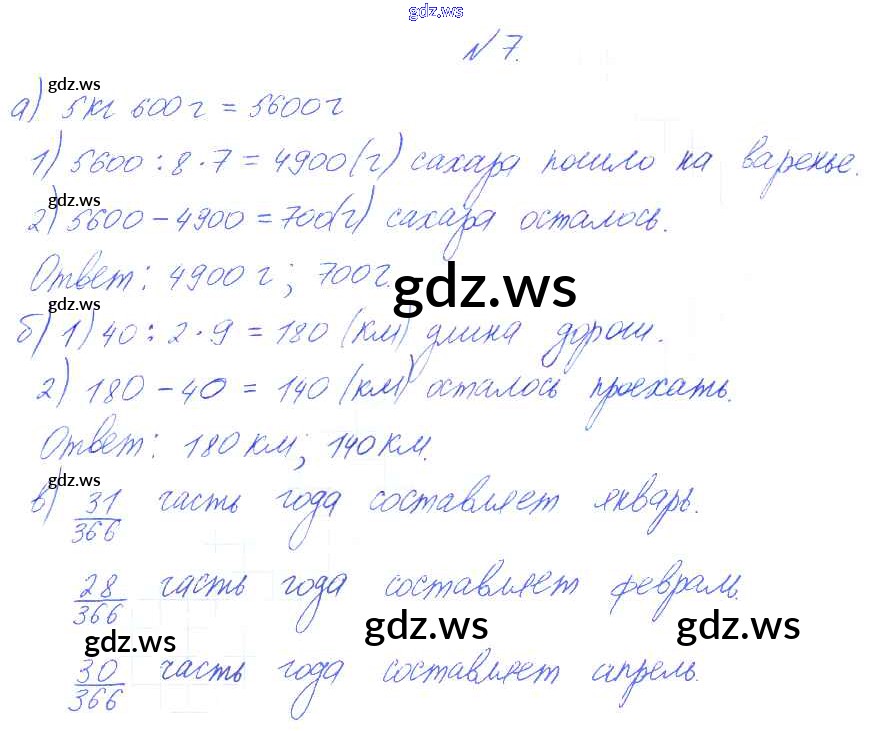 gdz.ws
№ 7.
gdz.ws
а) 5кг 600г = 5600г
1) 5600 : 8 · 7 = 4900 (г) сахара пошло на варенье.
gdz.ws
2) 5600 − 4900 = 700 (г) сахара осталось.
Ответ: 4900 г; 700г.
gdz.ws
gdz.ws
б) 1) 40 : 2 · 9 = 180 (км) длина дороги.
2) 180 − 40 = 140 (км) осталось проехать.
Ответ: 180 км; 140 км.
gdz.ws
в) 31/366 часть года составляет январь.
28/366 часть года составляет февраль.
gdz.ws gdz.ws gdz.ws
30/366 часть года составляет апрель.